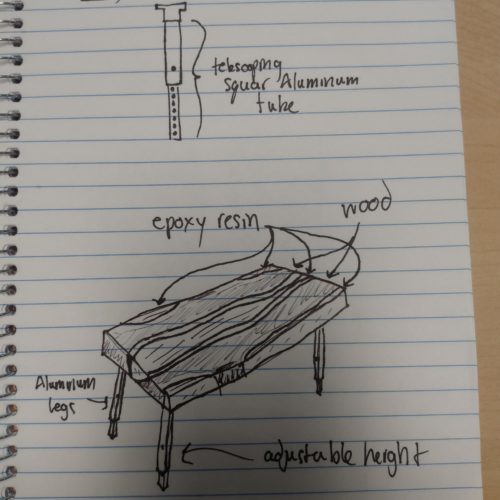 telescoping
squar Aluminum
tube
epoxy resin
wood
Aluminum
legs
adjustable height